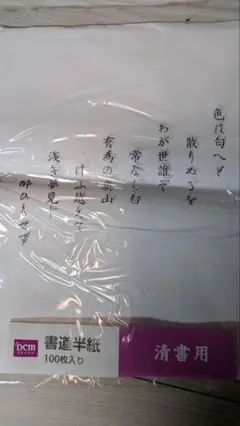 色は匂へど
散りぬるを
わが世誰ぞ
常ならむ
有為の奥山
けふ越えて
浅き夢見じ
酔ひもせず
DCM
BRAND
書道半紙
100枚入り
清書用